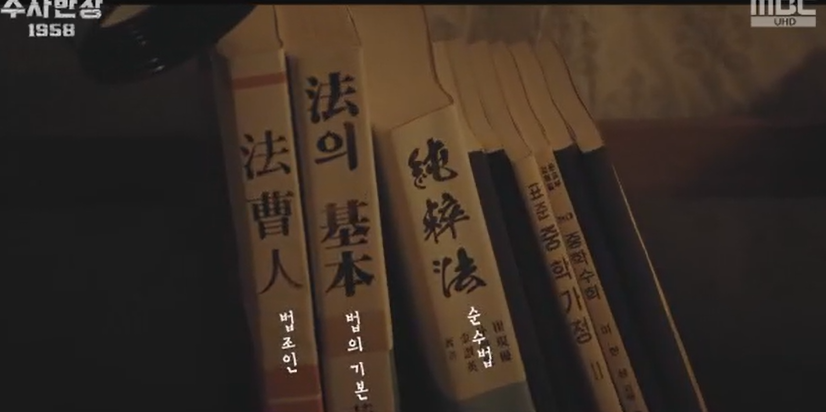 수사반장
1958
MBC
UHD
法曹人
법조인
法의 基本
법의 기본
純粹法
순수법
표준 중학가정 II
중학수학